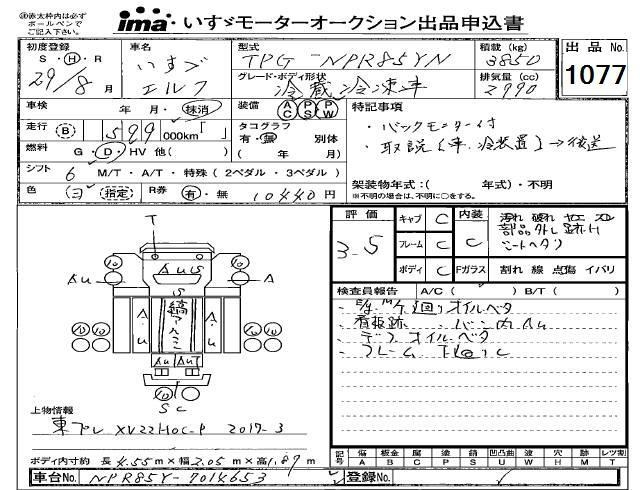 ※赤太枠内は必ずボールペンでご記入下さい。
ima・いすゞモーターオークション出品申込書
初度登録 S・H・R 29/8月
車名 いすゞ エルフ
型式 TPG-NPR85YN
積載(kg) 3850
出品No. 1077
グレード・ボディ形状 冷蔵冷凍車
排気量(cc) 2990
車検 年 月・抹消
装備 AC PS PW
特記事項
走行 (B) 529 000km
タコグラフ 有・無 別体 (年 月)
・バックモニター付
・取説(車、冷装置)→後送
燃料 G・D・HV 他( )
シフト 6 M/T・A/T・特殊(2ペダル・3ペダル)
架装物年式:( 年式)・不明
※不明の場合は、不明に○をする。
色 (指定) R券 有・無 10440円
評価 3.5
キャブ C
フレーム C
ボディ C
内装 C
汚れ 破れ ヤニ スレ
部品外し跡H
シートヘタリ
Fガラス 割れ 線 点傷 イバリ
検査員報告 A/C( ) B/T( )
・E/g M/T廻りオイルベタ
・看板跡 ・バン内Au
・デフオイルベタ
・フレーム下廻りC
T
Au AuS A
S
A・u 縞アルミ A・u
Au AuT
SC
上物情報
東プレ XV22HOC-P 2017-3
ボディ内寸約 長4.55m×幅2.05m×高1.87m
記号 傷A 板金B 腐C 塗P 錆S 凹凸曲U 波W 穴H 跡M レツ割T
車台No. NPR85Y-7014653
登録No.